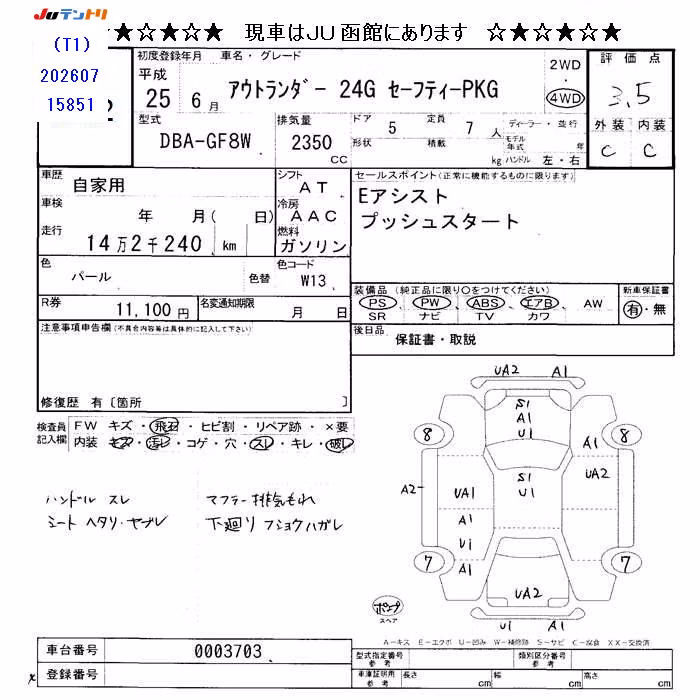 JUテントリ
★☆★☆★ 現車はJU函館にあります ☆★☆★☆★
(T1)
202607
15851
初度登録年月 車名・グレード
平成
25 6月
アウトランダー 24G セーフティーPKG
2WD
4WD
評価点
3.5
外装 内装
C C
型式
DBA-GF8W
排気量
2350
CC
ドア 5
定員 7人
ディーラー・並行
形状
積載
kg
モデル年式 年
ハンドル 左・右
車歴
自家用
車検
年 月( 日)
走行
14万2千240 km
シフト
AT
冷房
AAC
燃料
ガソリン
セールスポイント(正常に機能するものに限ります)
Eアシスト
プッシュスタート
色
パール
色替
色コード
W13
R券
11,100円
名変通知期限
月 日
装備品 (純正品に限り○をつけてください)
PS PW ABS エアB AW
SR ナビ TV カワ
新車保証書
有・無
後日品
保証書・取説
注意事項申告欄(不具合内容等は具体的に記入して下さい)
修復歴 有〔箇所 〕
検査員
記入欄
FW キズ・飛石・ヒビ割・リペア跡・×要
内装 キズ・汚レ・コゲ・穴・スレ・キレ・破レ
ハンドル スレ
シート ヘタリ・ヤブレ
マフラー排気もれ
下廻りフショクハガレ
UA2 A1
S1
A1
U1
8 8
A1
S1
U1
A2
UA1
UA2
A1
U1
A1
7 7
UA2
U1 A1
ポンプ
スペア
A-キズ E-エクボ U-凹み W-補修跡 S-サビ C-腐食 XX-交換済
車台番号
0003703
登録番号
型式指定番号
参考
類別区分番号
参考
車庫証明用
参考
長さ cm
幅 cm
高さ cm